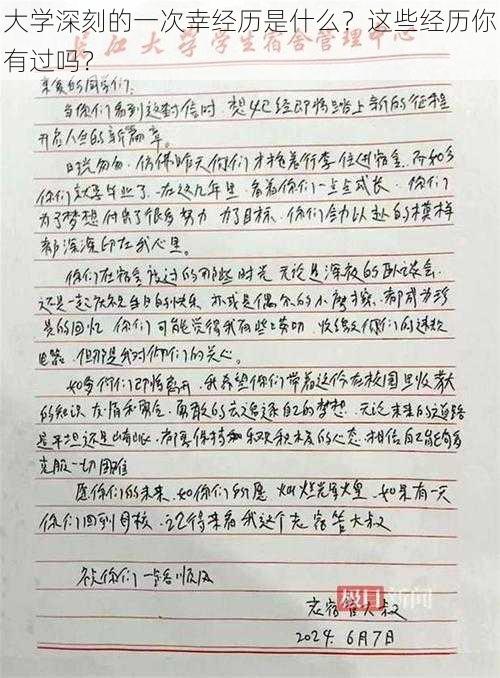 大学深刻的一次幸经历是什么？这些经历你
有过吗？
长江大学学生宿舍管理中心
亲爱的同学们：
当你们看到这封信时，想必已经即将踏上新的征程
开启人生的新篇章。
日子匆匆，仿佛昨天你们才拖着行李住进宿舍，而如今
你们就要毕业了。在这几年里，看着你们一点点成长，你们
为了梦想付出了很多努力，为了目标，你们全力以赴的模样
都深深印在我心里。
你们在宿舍度过的那些时光，无论是深夜的卧谈会，
还是一起庆祝生日的快乐，亦或是偶尔的小摩擦，都成为珍
贵的回忆，你们可能觉得我有些唠叨，收缴你们的违规
电器，但那是我对你们的关心。
如今你们即将离开，我希望你们带着这份在校园里收获
的知识、友情和成长，勇敢的去追逐自己的梦想，无论未来的道路
是平坦还是崎岖，都要保持和积极的心态，相信自己能够
克服一切困难
愿你们的未来，如你们所愿，灿烂光辉，如果有一天
你们回到母校，记得来看我这个老宿管大叔
祝你们一切顺风
极目新闻
老宿管大叔
2024 6月7日